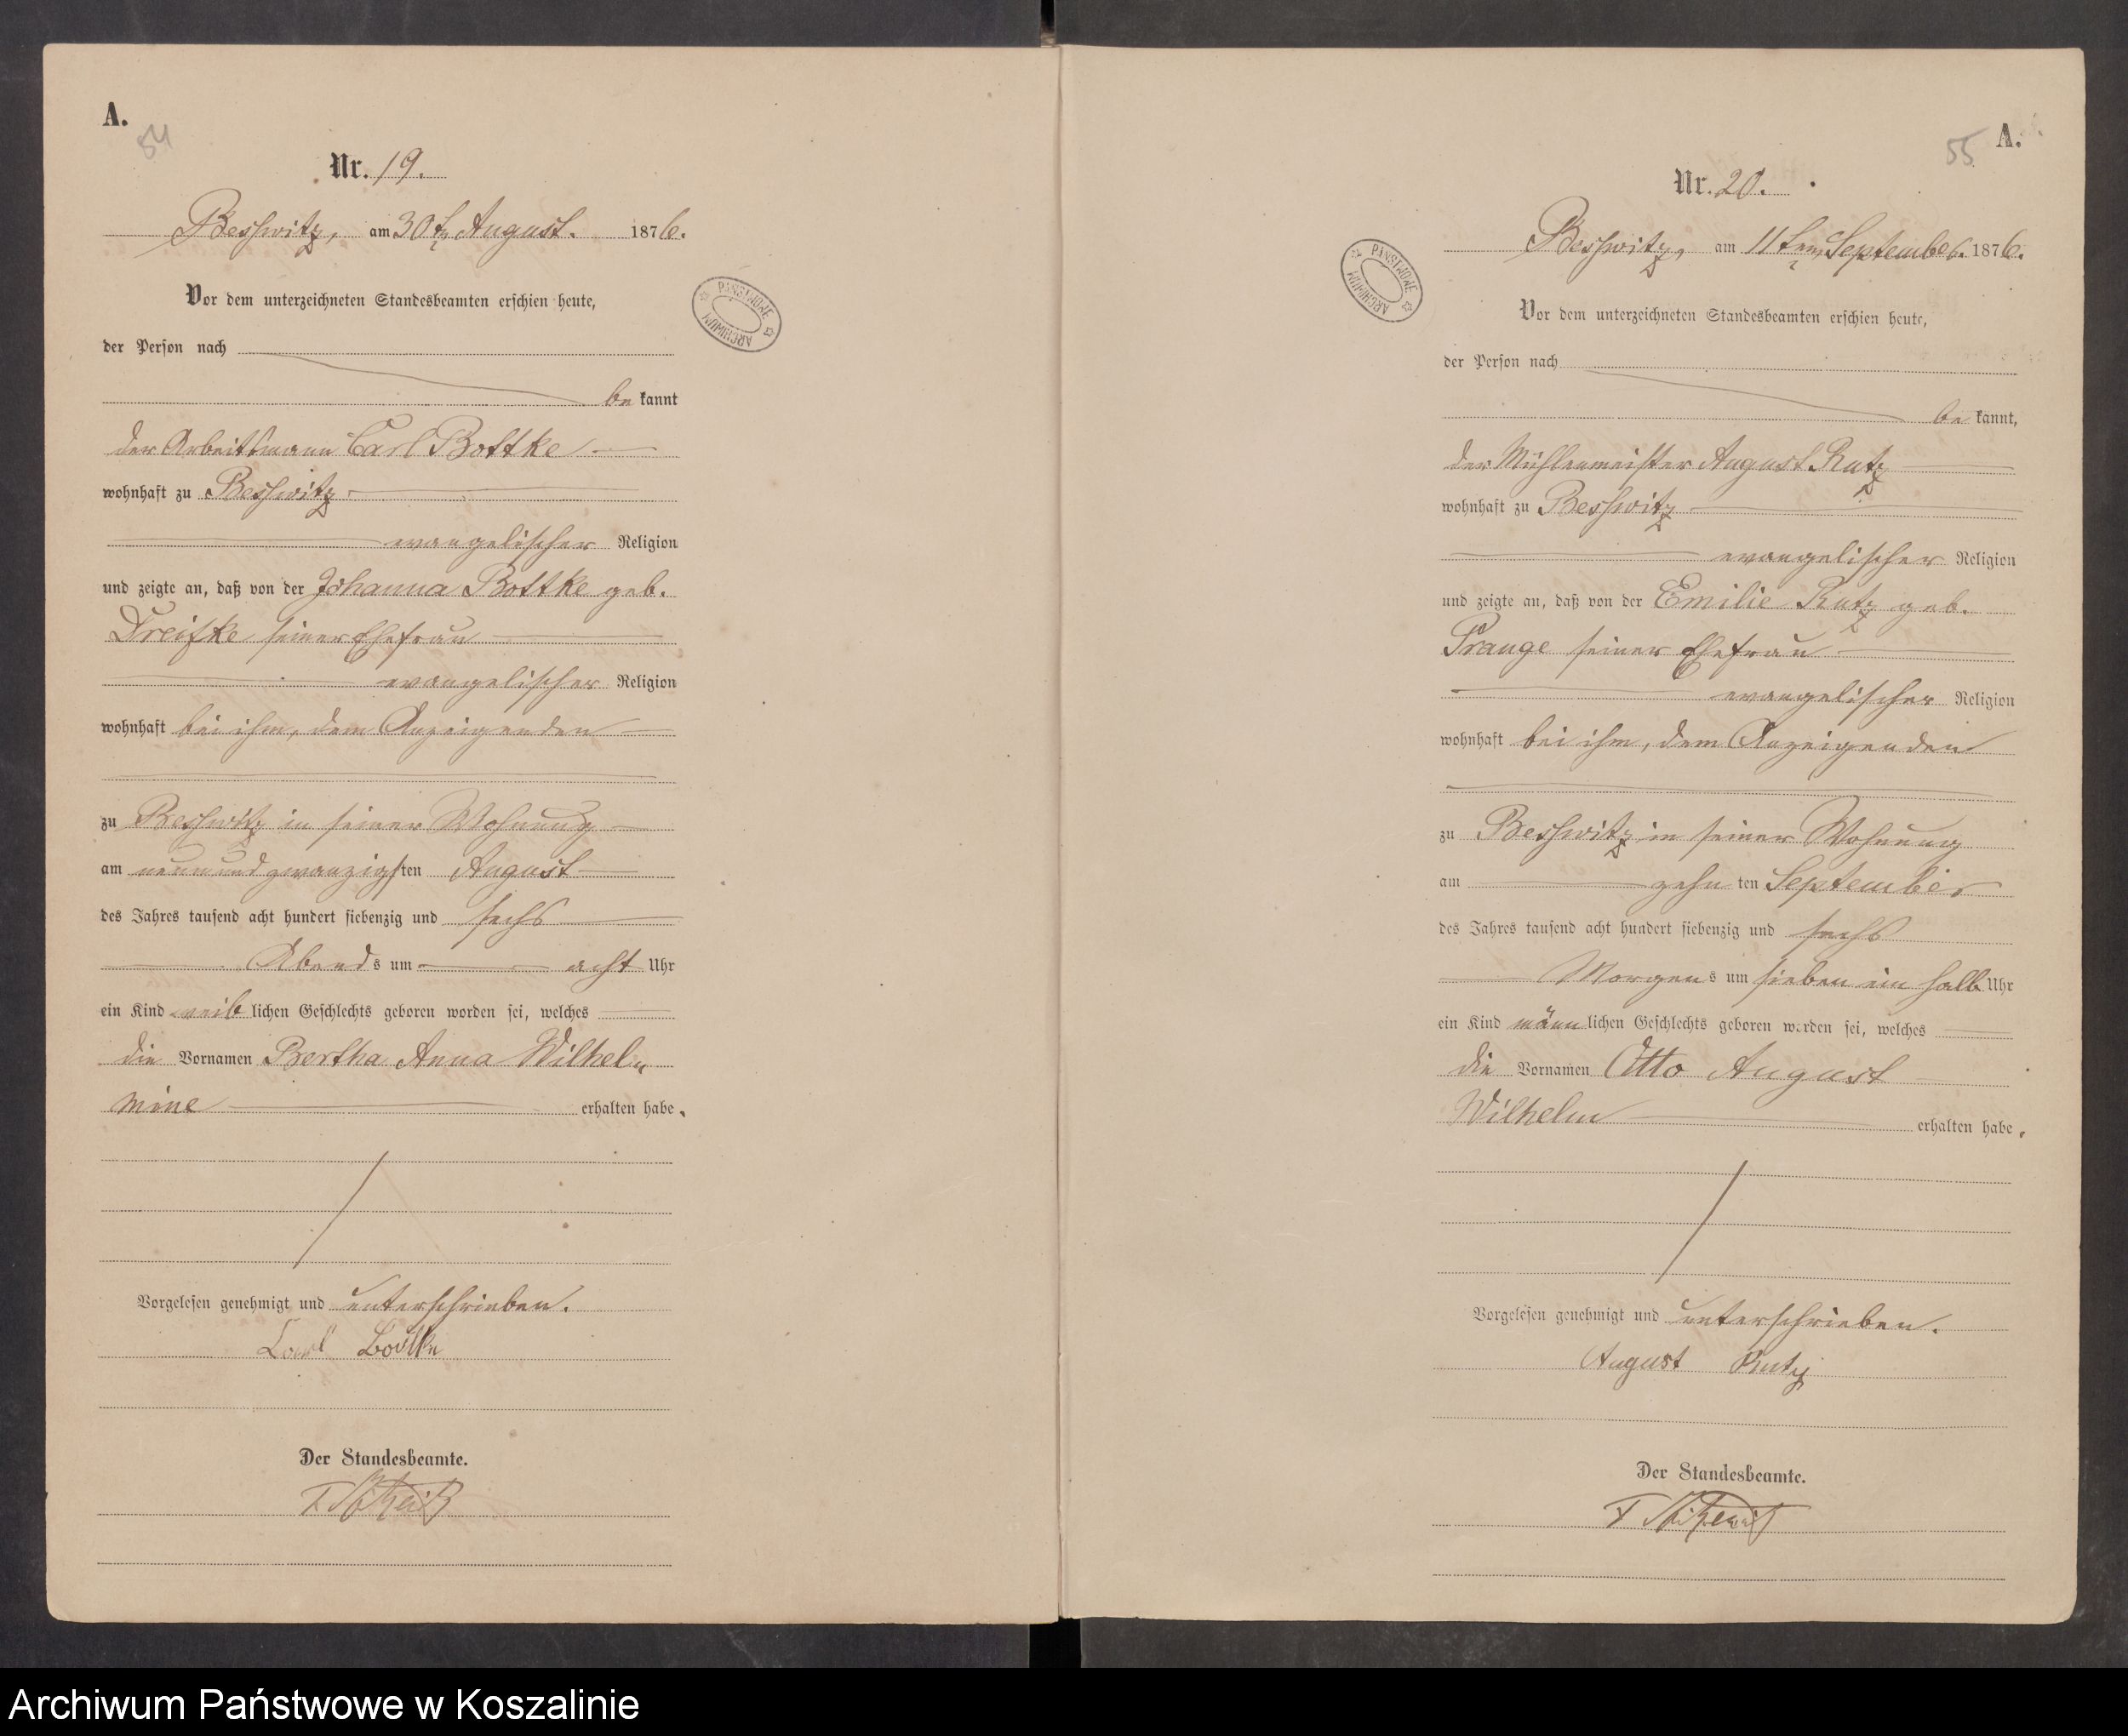 A.
54
Nr. 19.
Beßwitz, am 30t August. 1876.
Vor dem unterzeichneten Standesbeamten erschien heute,
der Person nach
be kannt
der Arbeitsmann Carl Bottke
wohnhaft zu Beßwitz
evangelischer Religion
und zeigte an, daß von der Johanna Bottke geb.
Dreifke seiner Ehefrau
evangelischer Religion
wohnhaft bei ihm, dem Anzeigenden
zu Beßwitz in seiner Wohnung
am neunundzwanzigsten August
des Jahres tausend acht hundert siebenzig und sechs
Abends um acht Uhr
ein Kind weiblichen Geschlechts geboren worden sei, welches
die Vornamen Bertha Anna Wilhel„
mine erhalten habe.
Vorgelesen genehmigt und unterschrieben.
Carl Bottke
Der Standesbeamte.
ARCHIWUM PAŃSTWOWE
55
A.
Nr. 20.
Beßwitz, am 11ten September. 1876.
Vor dem unterzeichneten Standesbeamten erschien heute,
der Person nach
be kannt,
der Mühlenmeister August Rutz
wohnhaft zu Beßwitz
evangelischer Religion
und zeigte an, daß von der Emilie Rutz geb.
Prange seiner Ehefrau
evangelischer Religion
wohnhaft bei ihm, dem Anzeigenden
zu Beßwitz in seiner Wohnung
am zehnten September
des Jahres tausend acht hundert siebenzig und sechs
Morgens um sieben ein halb Uhr
ein Kind männlichen Geschlechts geboren worden sei, welches
die Vornamen Otto August
Wilhelm erhalten habe.
Vorgelesen genehmigt und unterschrieben.
August Rutz
Der Standesbeamte.
ARCHIWUM PAŃSTWOWE
Archiwum Państwowe w Koszalinie